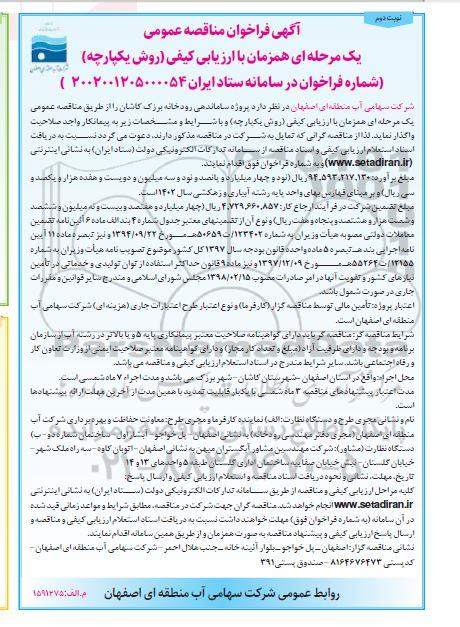 نوبت دوم
آگهی فراخوان مناقصه عمومی
یک مرحله ای همزمان با ارزیابی کیفی (روش یکپارچه)
(شماره فراخوان در سامانه ستاد ایران ۲۰۰۲۰۰۱۲۰۵۰۰۰۰۵۴ )
شرکت سهامی آب منطقه‌ای اصفهان در نظر دارد پروژه ساماندهی رودخانه برزک کاشان را از طریق مناقصه عمومی
یک مرحله ای همزمان با ارزیابی کیفی (روش یکپارچه) و با شرایط و مشخصات زیر به پیمانکار واجد صلاحیت
واگذار نماید. لذا از مناقصه گرانی که تمایل به شرکت در مناقصه مذکور دارند، دعوت می گردد نسبت به دریافت
اسناد استعلام ارزیابی کیفی و اسناد مناقصه از سامانه تدارکات الکترونیکی دولت (ستاد ایران) به نشانی اینترنتی
(www.setadiran.ir) و به شماره فراخوان فوق اقدام نمایند.
مبلغ برآورد: ۹۴،۵۹۳،۲۱۷،۱۳۰ ریال (نود و چهار میلیارد و پانصد و نود و سه میلیون و دویست و هفده هزار و یکصد و
سی ریال) و بر مبنای فهارس بهای واحد پایه رشته آبیاری و زهکشی سال ۱۴۰۲ است.
مبلغ تضمین شرکت در فرآیند ارجاع کار: ۴،۷۲۹،۶۶۰،۸۵۷ ریال (چهار میلیارد و هفتصد و بیست و نه میلیون و ششصد
و شصت هزار و هشتصد و پنجاه و هفت ریال) و نوع آن از تضمینهای معتبر جدول شماره ۴ بند الف ماده ۶ آئین‌نامه تضمین
معاملات دولتی مصوبه هیأت وزیران به شماره ۱۲۳۴۰۲/ت۵۰۶۵۹هـ مــورخ ۱۳۹۴/۰۹/۲۲ و نیز تبصره ماده ۱۱ آیین
نامه اجرایی بند هـ تبصره ۵ ماده واحده قانون بودجه سال ۱۳۹۷ کل کشور موضوع تصویب نامه هیأت وزیران به شماره
۱۲۱۵۵/ت۵۵۲۶۴هـ مـــورخ ۱۳۹۷/۱۲/۰۹ و نیز ماده ۹ قانون حداکثر استفاده از توان تولیدی و خدماتی در تأمین
نیازهای کشور و تقویت آنها در امر صادرات مصوب ۱۳۹۸/۰۲/۱۵ مجلس شورای اسلامی و مندرج سایر قوانین و مقررات
جاری در صورت شمول باشد.
اعتبار پروژه: تأمین مالی توسط مناقصه گزار (کارفرما) و نوع اعتبار طرح اعتبارات جاری (هزینه ای) شرکت سهامی آب
منطقه ای اصفهان است.
شرایط مناقصه گر: مناقصه گر باید دارای گواهینامه صلاحیت معتبر پیمانکاری پایه ۵ و یا بالاتر در رشته آب از سازمان
برنامه و بودجه و دارای ظرفیت آزاد (مبلغ و تعداد کار مجاز) و دارای گواهینامه معتبر صلاحیت ایمنی از وزارت تعاون کار
و رفاه اجتماعی باشد. سایر شرایط مندرج در اسناد استعلام ارزیابی کیفی و مناقصه می باشد.
محل اجرا: واقع در استان اصفهان -شهرستان کاشان - شهر برزک می باشد و مدت اجرا: ۷ ماه شمسی است.
مدت اعتبار پیشنهادهای مناقصه: ۳ ماه شمسی با یکبار قابلیت تمدید با همین مدت از آخرین مهلت ارائه پیشنهادها
است.
نام و نشانی مجری طرح و دستگاه نظارت: الف) نماینده کارفرما و مجری طرح: معاونت حفاظت و بهره برداری شرکت آب
منطقه ای اصفهان (مجری دفتر مهندسی رودخانه) به نشانی اصفهان - پل خواجو - آبشار اول - ساختمان شماره دو - ب)
دستگاه نظارت (مشاور): شرکت مهندسین مشاور آبگستران میهن به نشانی اصفهان - اتوبان کاوه - سه راه ملک شهر -
خیابان گلستان - نبش خیابان صفاییه ساختمان اداری گلستان طبقه ۵ واحدهای ۱۳ و ۱۴
تاریخ، مهلت، نشانی و نحوه دریافت اسناد مناقصه و استعلام ارزیابی کیفی و ارسال پاسخ:
کلیه مراحل ارزیابی کیفی و مناقصه از طریق سـامانه تدارکات الکترونیکی دولت (ستاد ایران) به نشانی اینترنتی
www.setadiran.ir انجام خواهد شد. مناقصه گران جهت شرکت در مناقصه، مطابق شرایط و مواعد زمانی قید شده
در آن سامانه (به شماره فراخوان فوق) مهلت خواهند داشت نسبت به دریافت اسناد استعلام ارزیابی کیفی و مناقصه و
ارسال پاسخ ارزیابی کیفی و پیشنهاد مناقصه به صورت همزمان و از طریق همین سامانه اقدام نمایند.
نشانی مناقصه گزار: اصفهان - پل خواجو - بلوار آئینه خانه - جنب هلال احمر - شرکت سهامی آب منطقه ای اصفهان -
کد پستی ۸۱۶۴۶۷۶۴۷۳ - صندوق پستی ۳۹۱
روابط عمومی شرکت سهامی آب منطقه ای اصفهان
م.الف: ۱۵۹۱۲۷۵